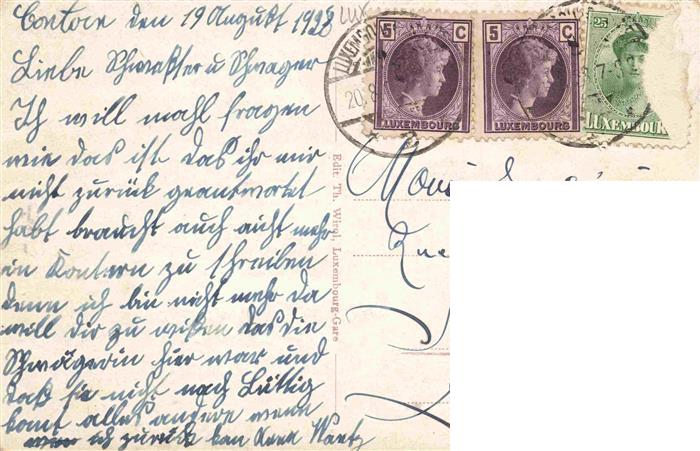 Contern den 19 August 1928
Liebe Schwester u Schwager
Ich will mahl fragen
wie das ist das ihr mir
nicht zurück geantwortet
habt braucht auch nicht mehr
in Kontern zu schreiben
denn ich bin nicht mehr da
will dir zu wißen das die
Schwägerin hier war und
daß sie nicht nach Lüttig
komt alles andere wenn
ich zurück
5 C
LUXEMBOURG
5 C
LUXEMBOURG
25
LUXEMBOURG
LUXEMBO
20.8
Edit. Th. Wirol, Luxembourg-Gare
Rue